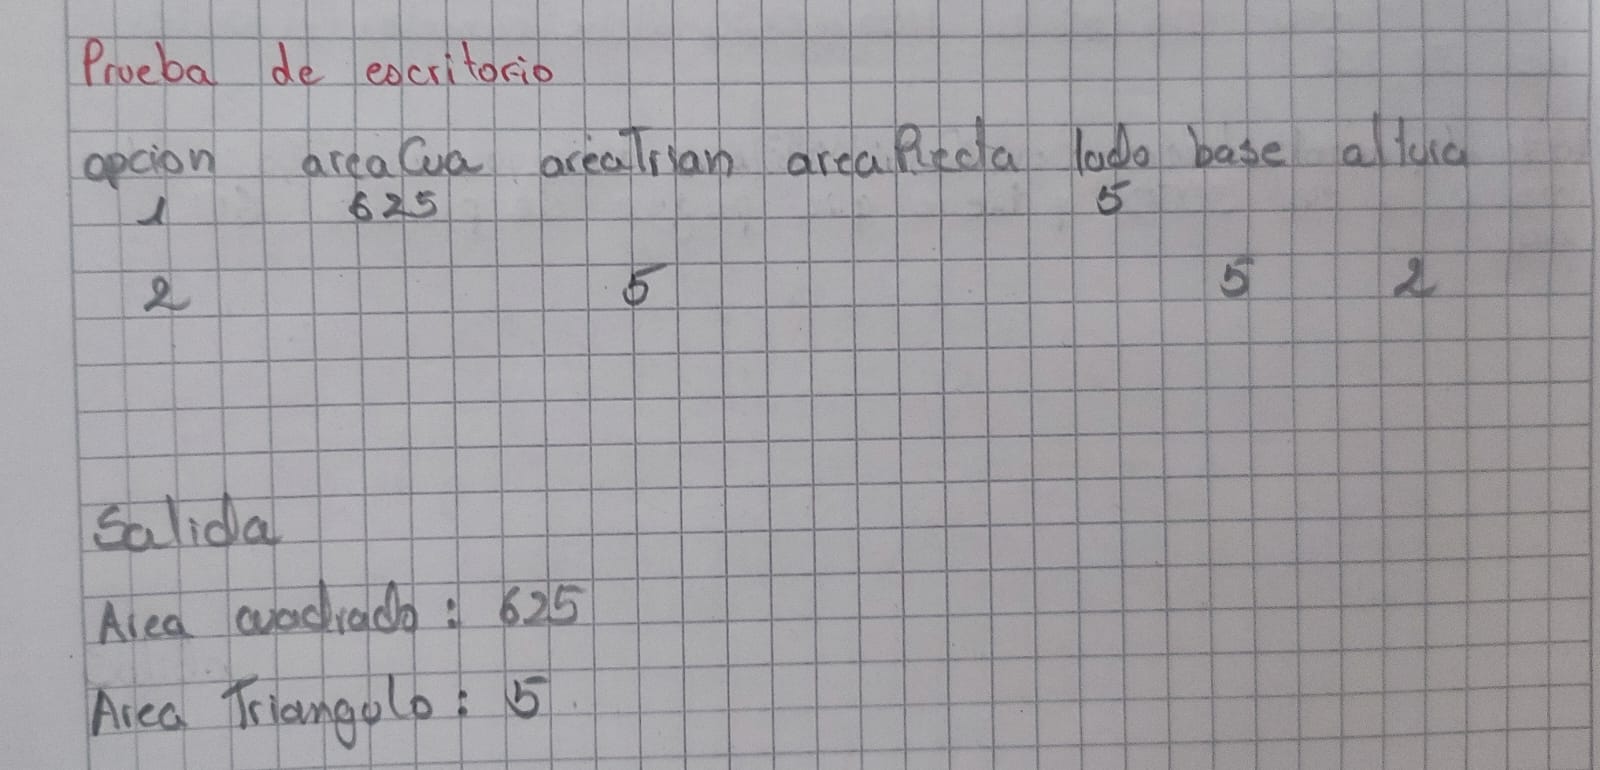 Prueba de escritorio
opcion areaCua areaTrian areaRecta lado base altura
1 625 5
2 5 5 2
Salida
Area cuadrado: 625
Area Triangulo: 5